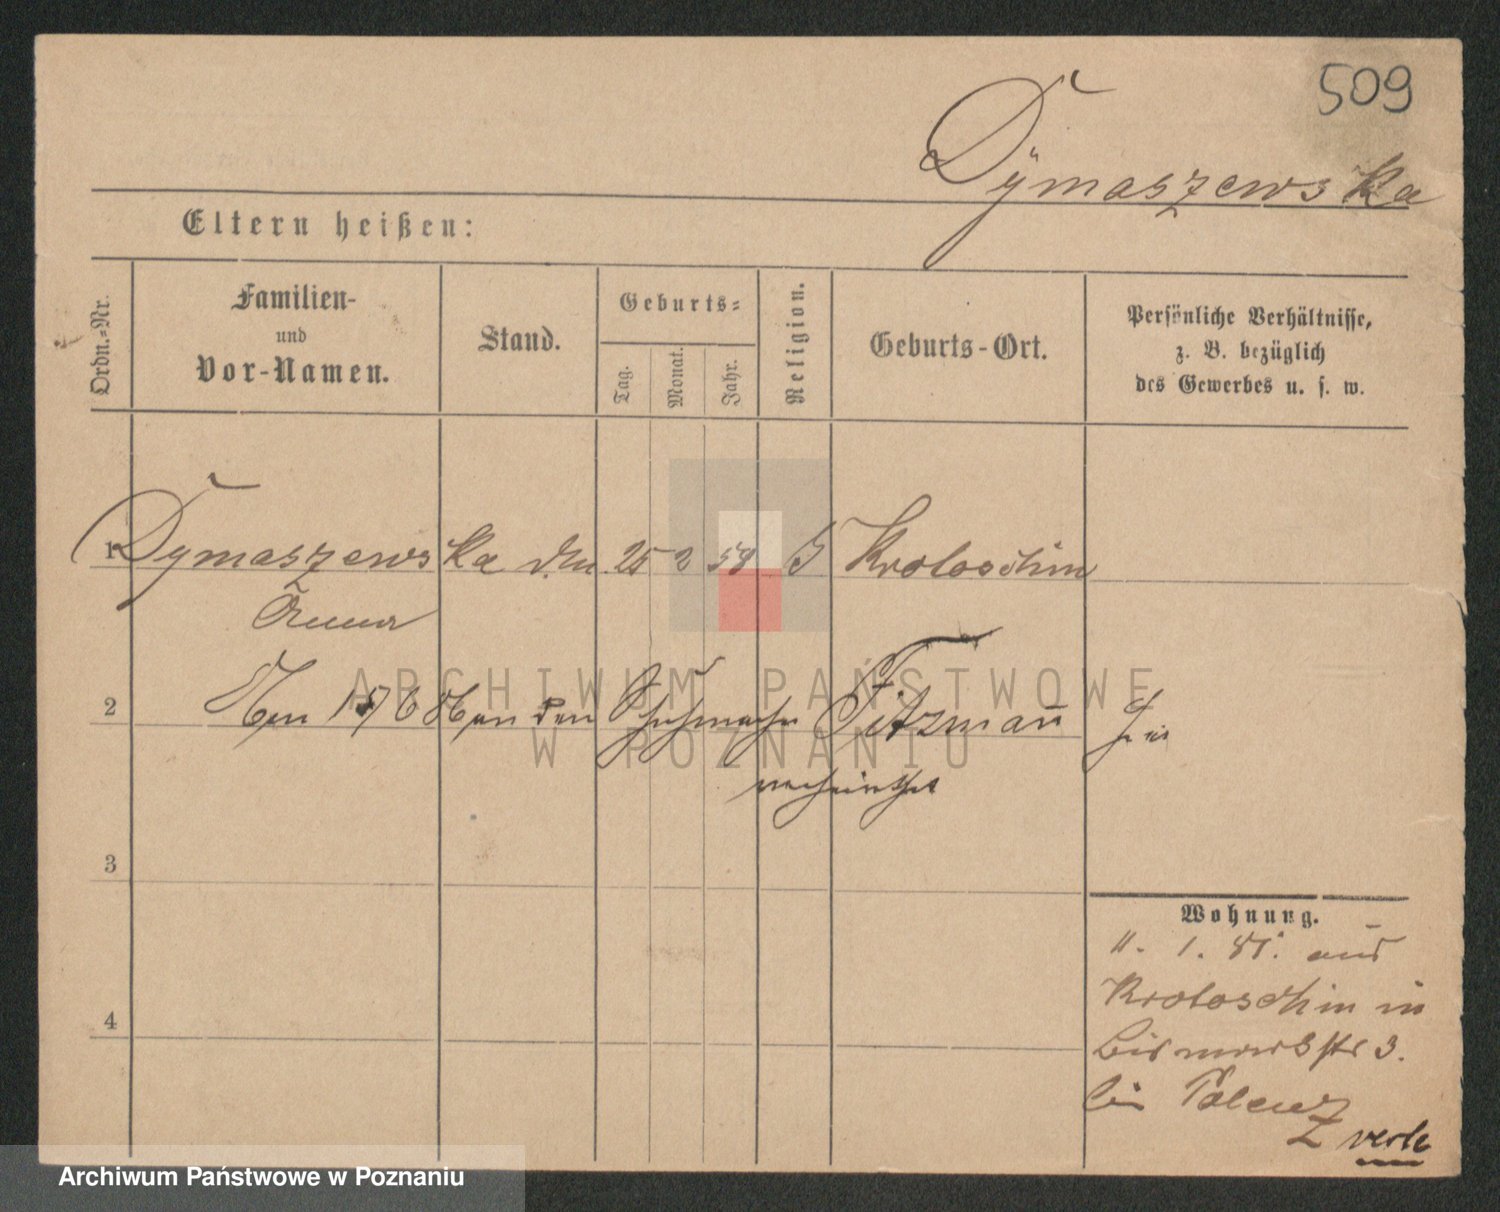 509
Dÿmaszewska
Eltern heißen:
Ordn.-Nr.
Familien-
und
Vor-Namen.
Stand.
Geburts-
Tag.
Monat.
Jahr.
Religion.
Geburts-Ort.
Persönliche Verhältnisse,
z. B. bezüglich
des Gewerbes u. s. w.
1 Dymaszewska 25 2 58 Krotoschin
Anna
2 Fitzman
3
4
Wohnung.
11. 1. 81. aus
Krotoschin in
Bismarkstr 3.
bei
verh
ARCHIWUM PAŃSTWOWE
W POZNANIU
Archiwum Państwowe w Poznaniu